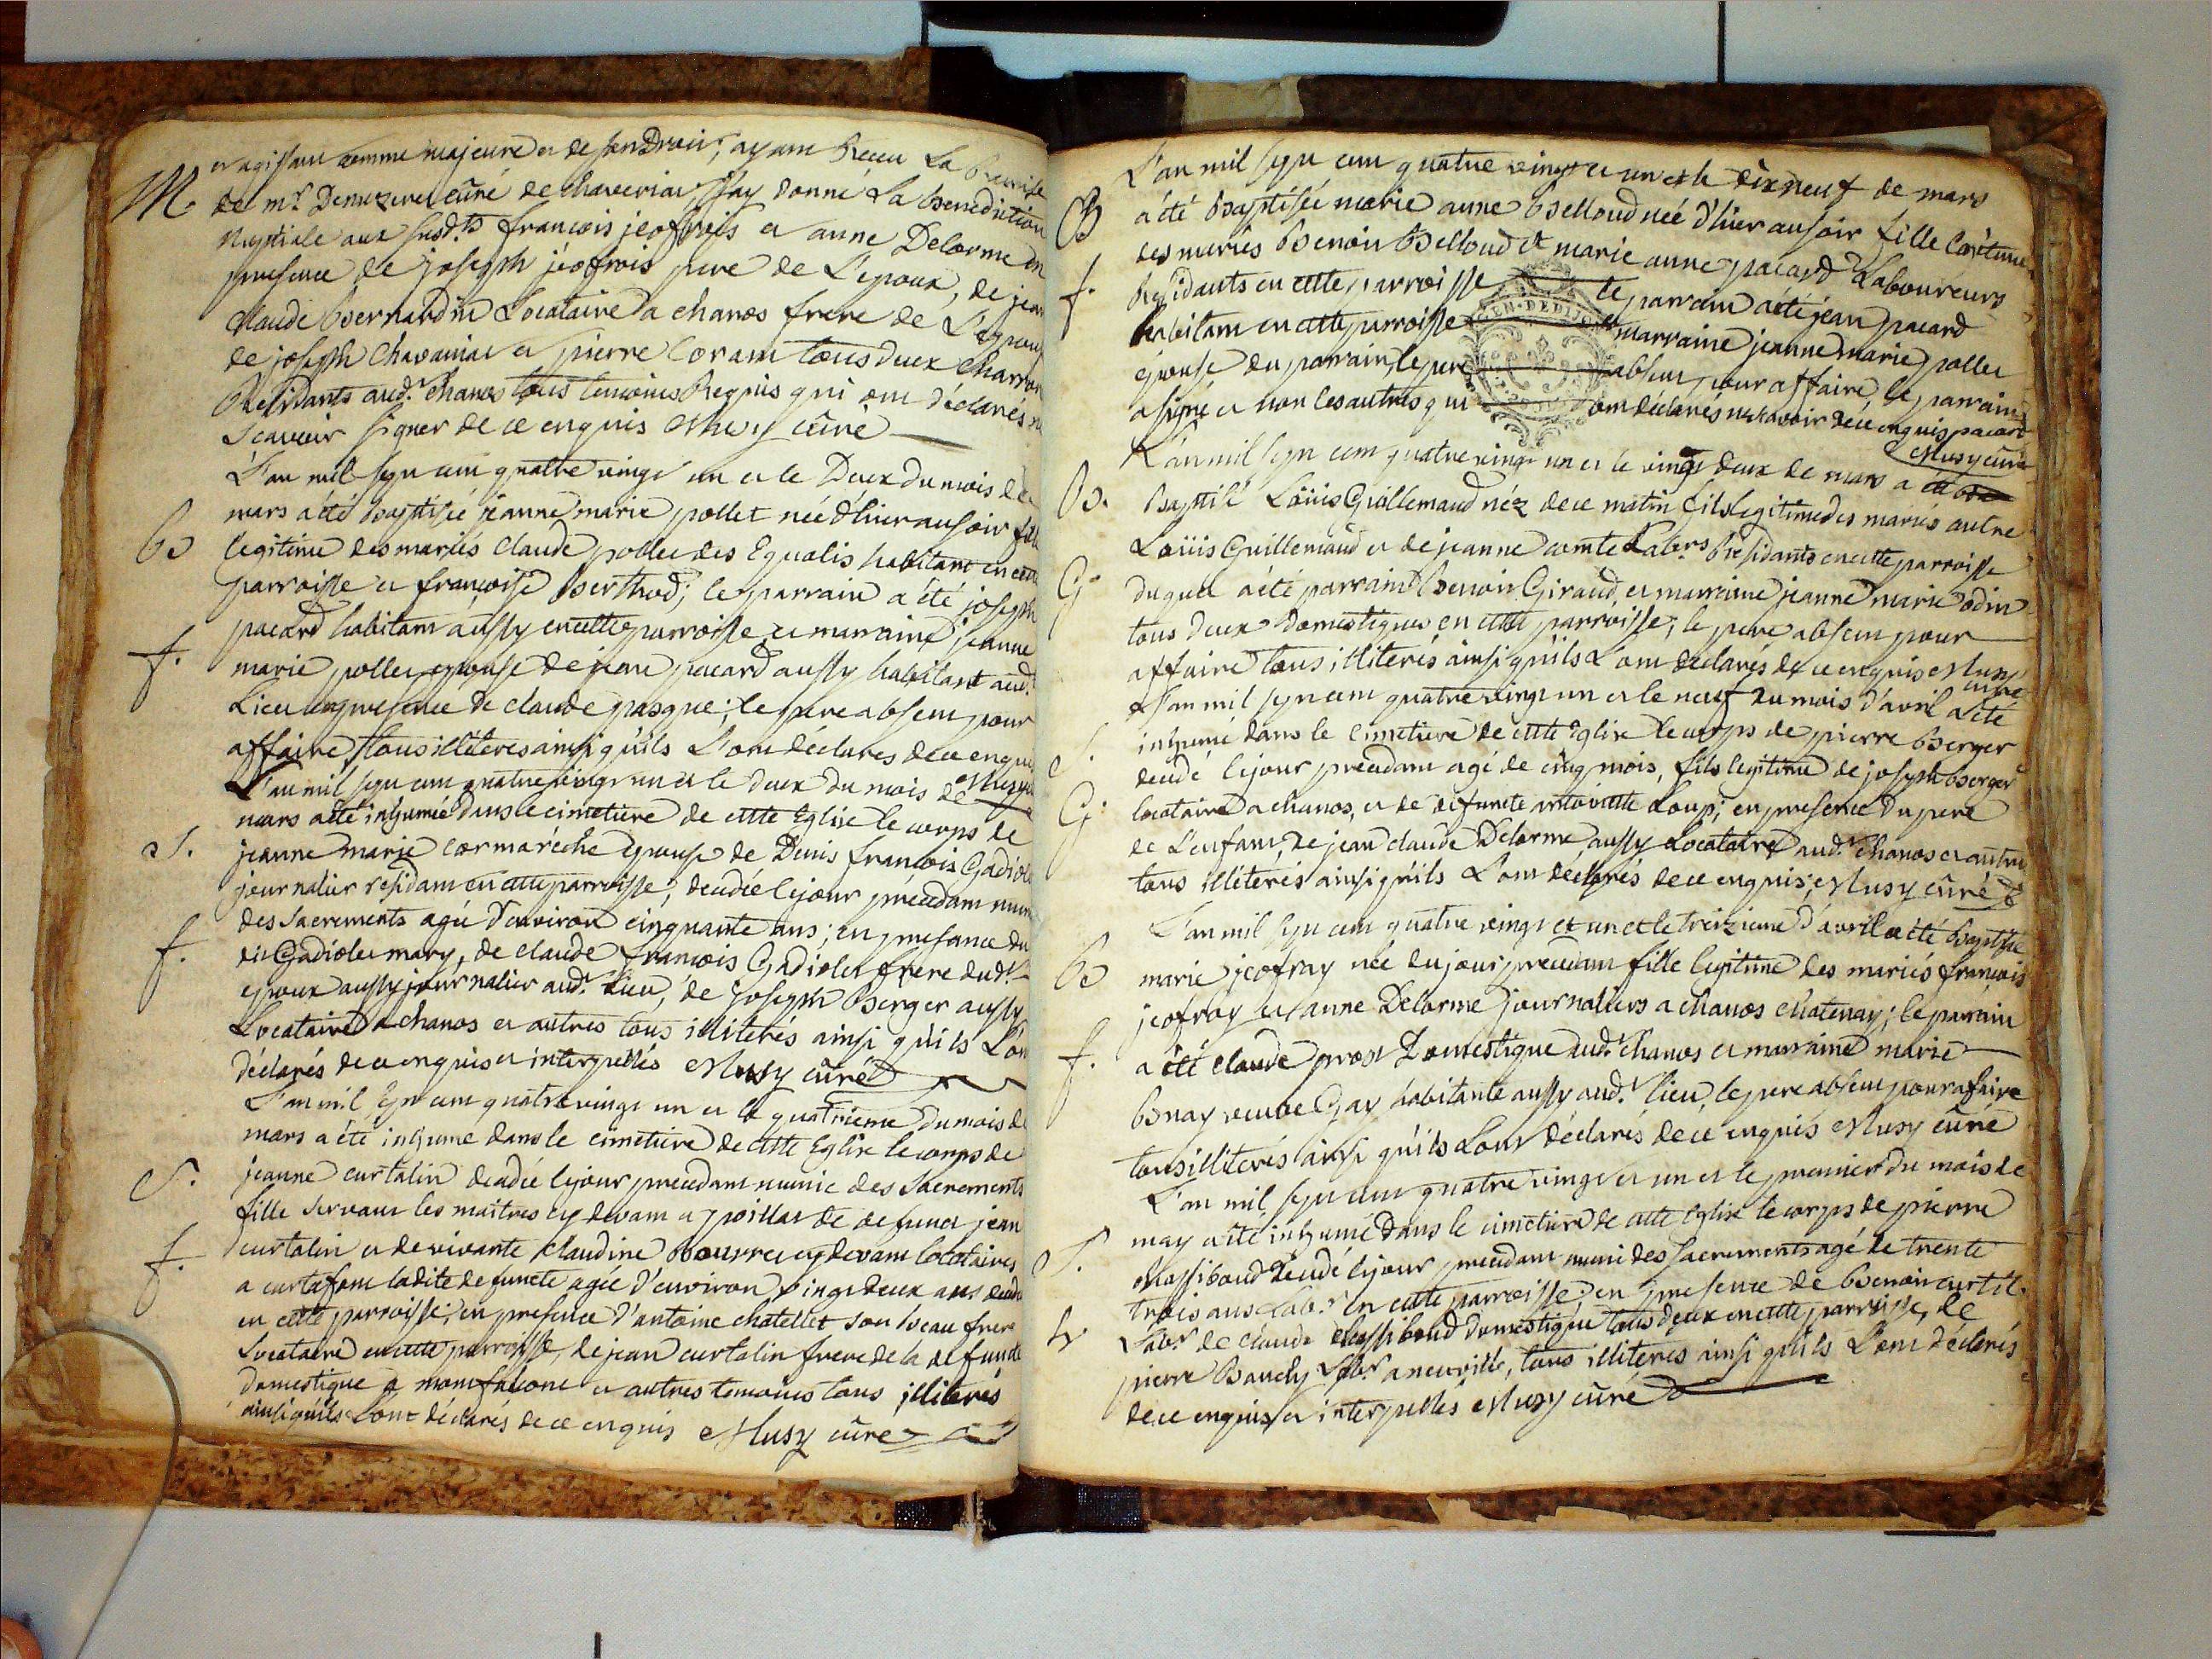 et agissant comme majeure et de son Droit; ayant Receu La Remise
M. de mr. Demuzeres curé de chaveriat, J'ay donné La benediction
Nuptiale aux susd.ts francois jeofrois et anne Delorme en
presence de joseph jéofrois pere de L'epoux, de jean
claude bernardin Locataire a chanos frere de L'epouse
de joseph chavaniat et pierre Coram tous deux charron
Residants aud.t chanos tous temoins Requis qui ont déclarés ne
scavoir signer de ce enquis Musy curé
L'an mil sept cent quatre vingt un et le Deux du mois de
mars a été baptisée jeanne marie pollet née d'hier au soir fille
B legitime des mariés claude pollet des Egualis habitant en cette
parroisse et francoise berthod; le parrain a été joseph
pacard habitant aussy en cette parroisse et marraine jeanne
f. marie pollet epouse de jean pacard aussy habitant aud.t
Lieu en presence de claude pasque; le pere absent pour
affaire tous illiterés ainsi qu'ils L'ont déclarés de ce enquis
L'an mil sept cent quatre vingt un et le deux du mois de Musy
mars a été inhumée dans le cimetiere de cette Eglise le corps de
S. jeanne marie cormaréche epouse de Denis francois Gadiolet
journalier residant en cette parroisse; decedée le jour précedant munie
des Sacrements agée d'environ cinquante ans; en presance du
f. dit Gadiolet mary, de claude francois Gadiolet frere dud.t
epoux aussy journalier aud.t Lieu, de joseph Berger aussy
Locataire a chanos et autres tous illiterés ainsi qu'ils L'ont
déclarés de ce enquis et interpellés Musy curé
L'an mil sept cent quatre vingt un et le quatrieme du mois de
mars a été inhumé dans le cimetiere de cette Eglise le corps de
S. jeanne curtalin decedée le jour precedant munie des Sacrements
fille servant les maitres cy devant a poillat de defunct jean
f. curtalin et de vivante claudine bourret cy devant locataires
a curtafont ladite defuncte agée d'environ vingt deux ans decedée
en cette parroisse; en presence d'antoine chatellet son beau frere
Locataire en cette parroisse, de jean curtalin frere de la defuncte
domestique a montfalcone et autres temoins tous illiterés
ainsi qu'ils L'ont déclarés de ce enquis Musy curé
L'an mil sept cent quatre vingt et un et le dix neuf de mars
B a été baptisée marie anne belloud née d'hier au soir fille legitime
des mariés Benoit Belloud et marie anne pacard Laboureurs
f. Residants en cette parroisse le parrain a été jean pacard
habitant en cette parroisse et marraine jeanne marie pollet
epouse du parrain, le pere absent pour affaire, le parrain
a signé et non les autres qui ont déclarés ne scavoir de ce enquis pacard
Musy curé
L'an mil sept cent quatre vingt un et le vingt deux de mars a été
B. baptisé Loüis Guillemaud néz de ce matin fils legitime des mariés autre
Loüis Guillemaud et de jeanne comte Labrs Residants en cette parroisse
G duquel a été parrain benoit Giraud, et marraine jeanne marie odin
tous deux domestiques en cette parroisse; le pere absent pour
affaire tous illiterés ainsi qu'ils L'ont déclarés de ce enquis Musy
curé
L'an mil sept cent quatre vingt un et le neuf du mois d'avril a été
S. inhumé dans le cimetiere de cette Eglise le corps de pierre berger
decedé le jour precedant agé de cinq mois, fils legitime de joseph berger
G. locataire a chanos, et de defuncte antoinette Loup; en presence du pere
de L'enfant, de jean claude Delorme aussy Locataire aud.t chanos et autres
tous illiterés ainsi qu'ils L'ont déclarés de ce enquis; Musy curé
L'an mil sept cent quatre vingt et un et le treizieme d'avril a été baptisée
B marie jeofray née du jour precedant fille legitime des mariés francois
jeofroy et anne Delorme journaliers a chanos chatenay; le parrain
f. a été claude prost Domestique aud.t chanos et marraine marie
bonay veuve Gay habitante aussy aud.t lieu, le pere absent pour afaire
tous illiterés ainsi qu'ils L'ont déclarés de ce enquis Musy curé
L'an mil sept cent quatre vingt et un et le premier du mois de
may a été inhumé dans le cimetiere de cette Eglise le corps de pierre
S. Massiboud decedé le jour precedant muni des Sacrements agé de trente
trois ans Lab.r en cette parroisse en presence de benoit curtil
Lab.r de claude Massiboud domestique tous deux en cette parroisse, de
pierre Bandy Lab.r a neuville, tous illiterés ainsi qu'ils L'ont déclarés
de ce enquis et interpellés Musy curé